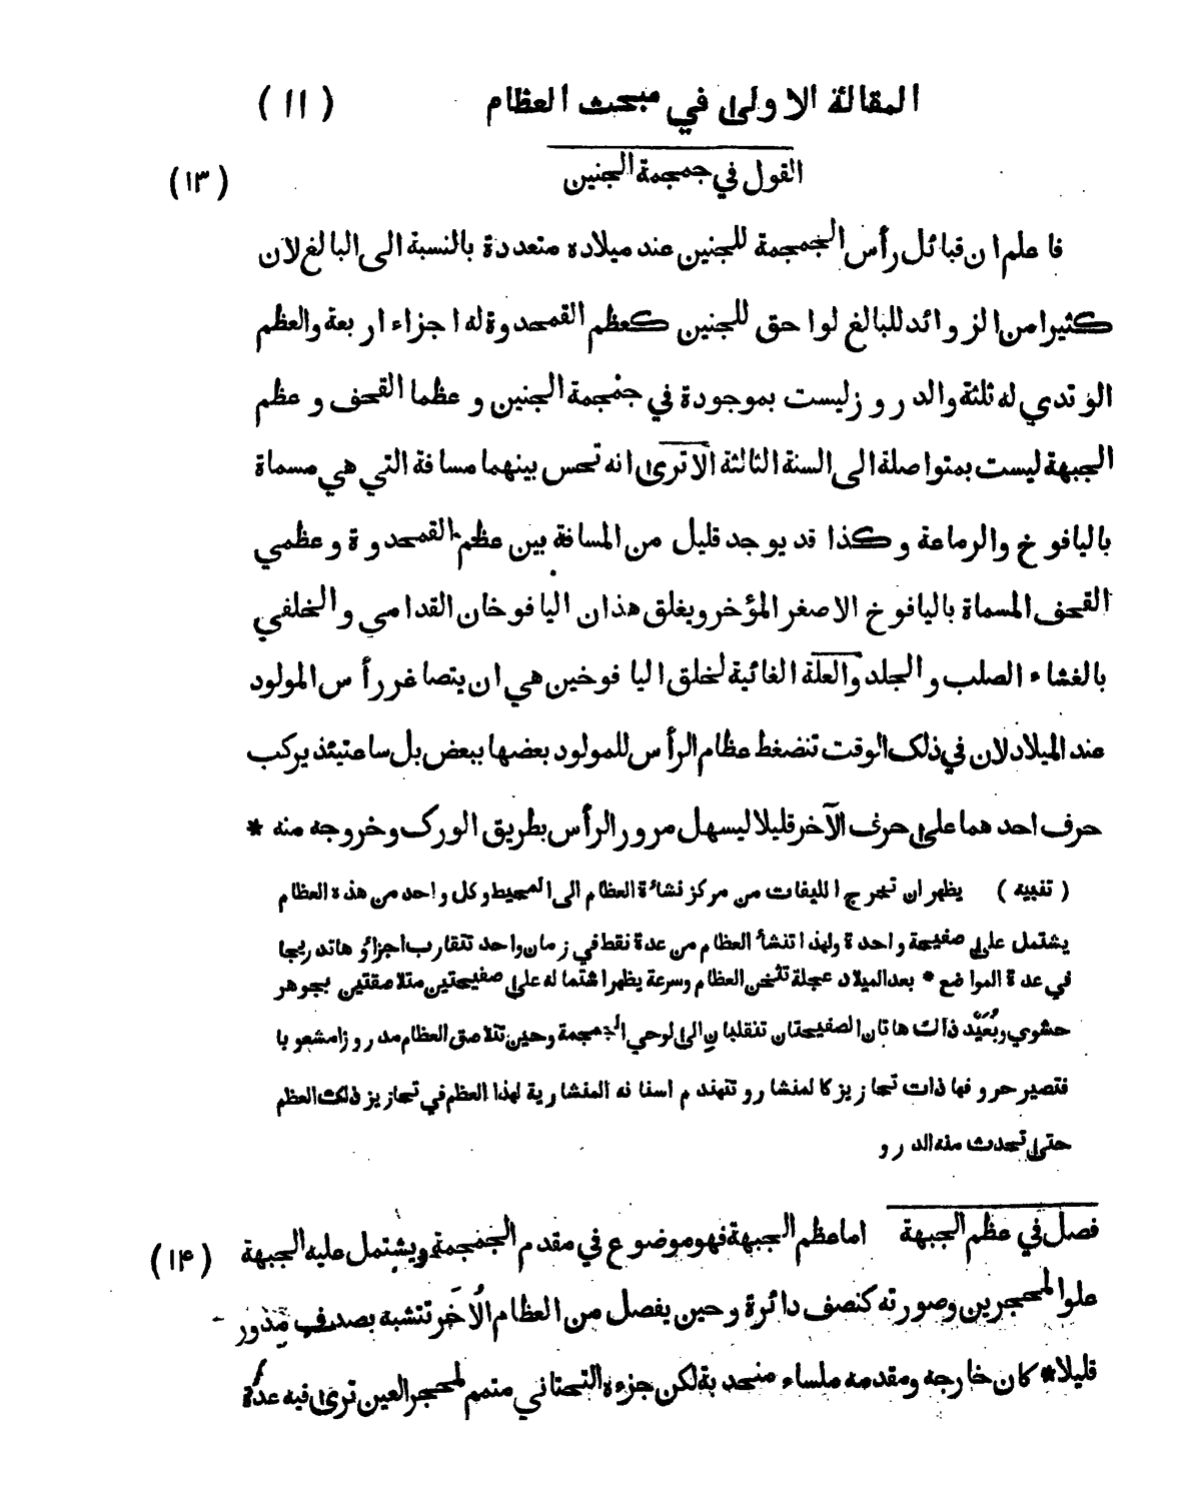 المقالة الاولى في مبحث العظام (١١)
القول في جمجمة الجنين (١٣)
فاعلم ان قبائل رأس الجمجمة للجنين عند ميلاده متعددة بالنسبة الى البالغ لان
كثيرا من الزوائد للبالغ لواحق للجنين كعظم القمحدوة له اجزاء اربعة والعظم
الوتدي له ثلثة والدروز ليست بموجودة في جمجمة الجنين وعظما القحف وعظم
الجبهة ليست بمتواصلة الى السنة الثالثة الا ترى انه تحس بينهما مسافة التي هي مسماة
باليافوخ والرماعة وكذا قد يوجد قليل من المسافة بين عظم القمحدوة وعظمي
القحف المسماة باليافوخ الاصغر المؤخر ويغلق هذان اليافوخان القدامي والخلفي
بالغشاء الصلب والجلد والعلة الغائية لخلق اليافوخين هي ان يتصاغر رأس المولود
عند الميلاد لان في ذلك الوقت تنضغط عظام الرأس للمولود بعضها ببعض بل ساعتيئذ يركب
حرف احدهما على حرف الآخر قليلا ليسهل مرور الرأس بطريق الورك وخروجه منه *
(تنبيه) يظهر ان تخرج الليفات من مركز نشائة العظام الى المحيط وكل واحد من هذه العظام
يشتمل على صفيحة واحدة ولهذا تنشأ العظام من عدة نقط في زمان واحد تتقارب اجزاؤها تدريجا
في عدة المواضع * بعد الميلاد عجلة تثخن العظام وسرعة يظهر اشتماله على صفيحتين متلاصقتين بجوهر
حشوي وبُعَيْد ذالك هاتان الصفيحتان تنقلبان الى لوحي الجمجمة وحين تتلاصق العظام مدروزا مشعوبا
فتصير حروفها ذات تحازيز كالمنشار وتنهندم اسنانه المنشارية لهذا العظم في تحازيز ذلك العظم
حتى تحدث منه الدرو
فصل في عظم الجبهة اما عظم الجبهة فهو موضوع في مقدم الجمجمة ويشتمل عليه الجبهة (١۴)
علو المحجرين وصورته كنصف دائرة وحين يفصل من العظام الُاخَر تتشبه بصدف مدور
قليلا * كان خارجه ومقدمه ملساء منحدبة لكن جزءه التحتاني متمم لمحجر العين ترى فيه عدة